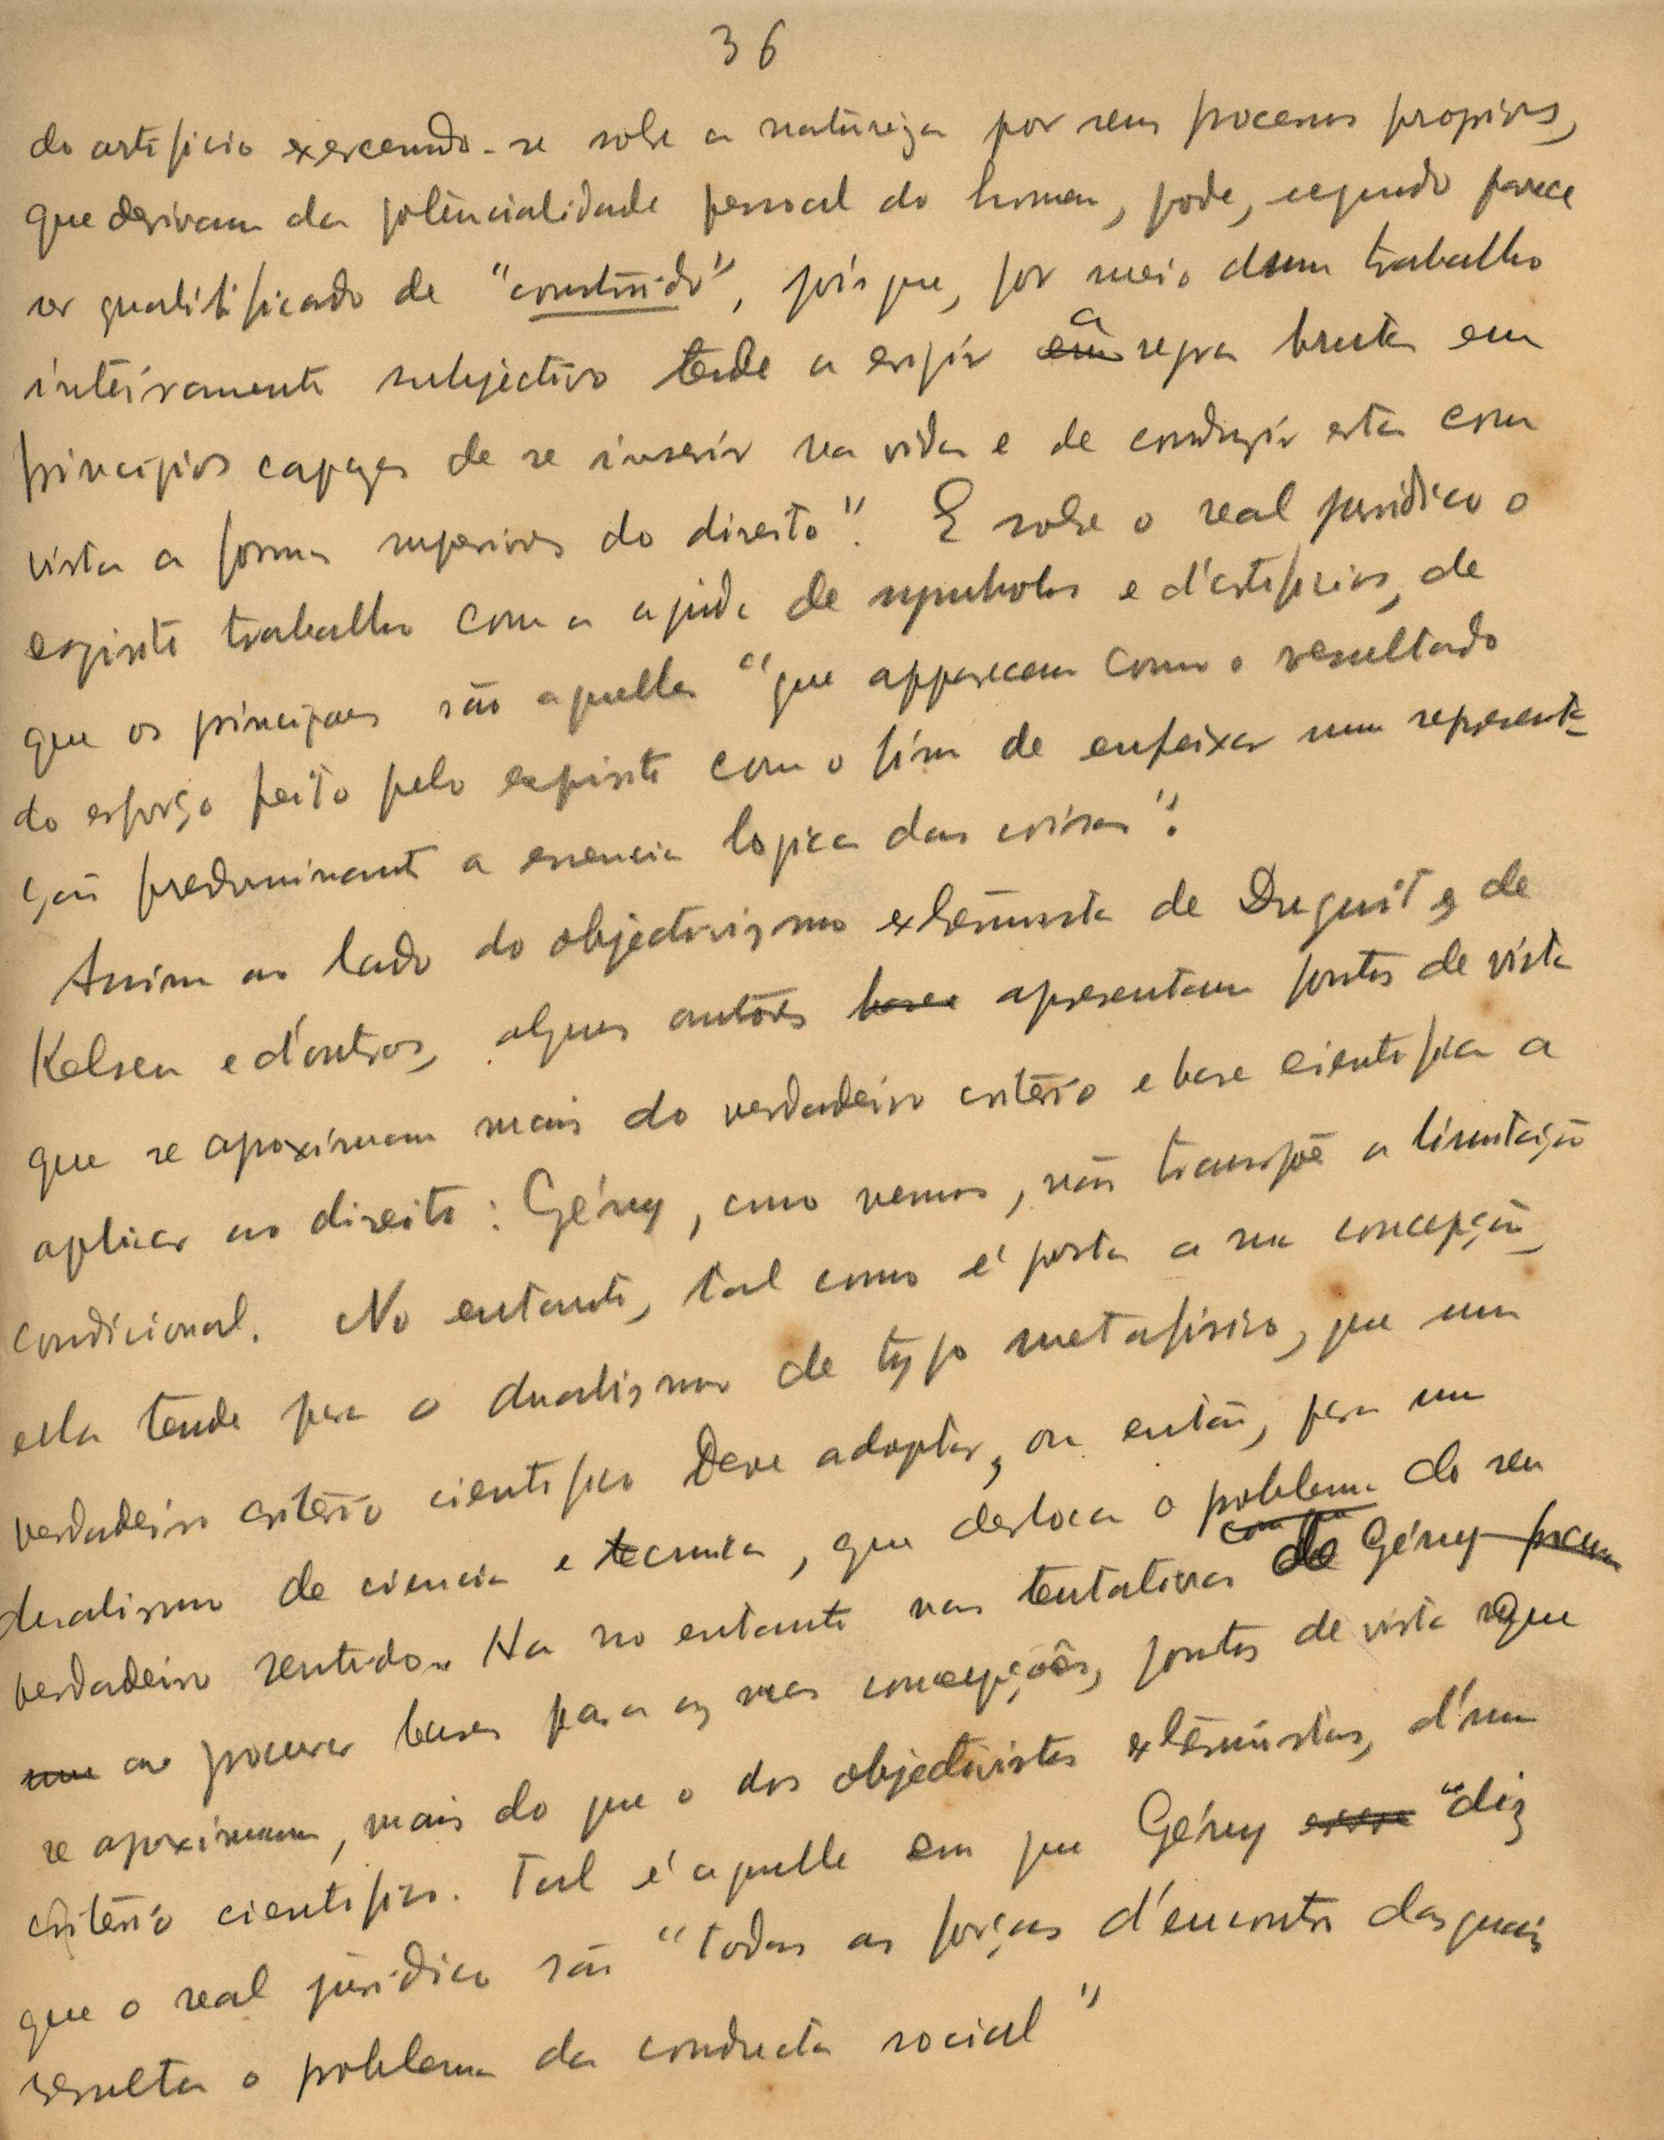 36
do artificio exercendo-se sobre a natureza por seus processos proprios,
que derivam da potencialidade pessoal do homem, pode, segundo parece
ser qualitificado de "construido", pois que, por meio dum trabalho
inteiramente subjectivo tende a erigir a regra bruta em
principios capazes de se inserir na vida e de conduzir esta com
vista a forma superiores do direito". E sobre o real juridico o
espirito trabalha com a ajuda de symbolos e d'artificios, de
que os principaes são aquelles "que apparecem como o resultado
do esforço feito pelo espirito com o fim de enfeixar num representa-
ção predominante a essencia logica das coisas".
Assim ao lado do objectivismo extremista de Duguit e de
Kelsen e d'outros, alguns autores apresentam pontos de vista
que se apoximam mais do verdadeiro criterio e base cientifica a
aplicar ao direito: Gény, como vemos, não transpõe a limitação
condicional. No entanto, tal como é posta a sua concepção,
ella tende para o dualismo de typo metafisico, que um
verdadeiro criterio cientifico deve adoptar, ou então, para um
dualismo de ciencia e tecnica, que desloca o poblema do seu
verdadeiro sentido. Ha no entanto nas tentativas de Gény
ao procurar bases para as suas concepções, pontos de vista que
se apoximam, mais do que o dos objectivistas extremistas, d'um
criterio cientifico. Tal é aquelle em que Gény "diz
que o real juridico são "todas as forças d'encontro das quais
resulta o poblema da conducta social"